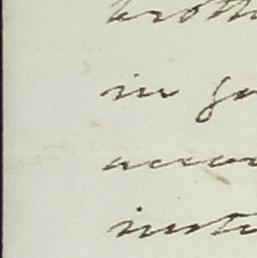 broth
in go
accor
inste